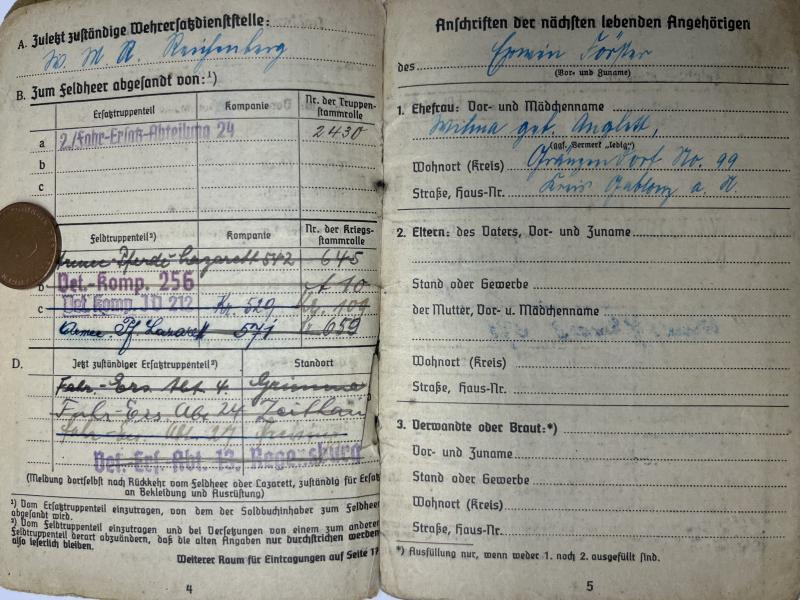 A. Zuletzt zuständige Wehrersatzdienststelle:
W. M. A. Reichenberg
B. Zum Feldheer abgesandt von:¹)
Ersatztruppenteil Kompanie Nr. der Truppen-stammrolle
a 2./Fahr-Ersatz-Abteilung 24 2430
b
c
Feldtruppenteil²) Kompanie Nr. der Kriegs-stammrolle
Pferde Lazarett 542 645
b Vet.-Komp. 256 10
c Vet. Komp. ID 212 Kr. 529 109
Armee. Pf. Lazarett 571 659
D. Jetzt zuständiger Ersatztruppenteil²) Standort
Fahr-Ers. Abt. 4. Grimma
Fahr-Ers. Abt. 24 Zeithain
Fahr-Ers. Abt. 27
Vet. Ers. Abt. 13, Regensburg
(Meldung dortselbst nach Rückkehr vom Feldheer oder Lazarett, zuständig für Ersatz
an Bekleidung und Ausrüstung)
¹) Vom Ersatztruppenteil einzutragen, von dem der Soldbuchinhaber zum Feldheer
abgesandt wird.
²) Vom Feldtruppenteil einzutragen und bei Versetzungen von einem zum anderen
Feldtruppenteil derart abzuändern, daß die alten Angaben nur durchstrichen werden,
also leserlich bleiben.
Weiterer Raum für Eintragungen auf Seite 17
4
Anschriften der nächsten lebenden Angehörigen
des Erwin Förster
(Vor- und Zuname)
1. Ehefrau: Vor- und Mädchenname
Wilma geb. Anglett,
(ggf. Vermerk „ledig")
Wohnort (Kreis) Gränzendorf No. 99
Straße, Haus-Nr. Kreis Gablonz a. N.
2. Eltern: des Vaters, Vor- und Zuname
Stand oder Gewerbe
der Mutter, Vor- u. Mädchenname
Wohnort (Kreis)
Straße, Haus-Nr.
3. Verwandte oder Braut:*)
Vor- und Zuname
Stand oder Gewerbe
Wohnort (Kreis)
Straße, Haus-Nr.
*) Ausfüllung nur, wenn weder 1. noch 2. ausgefüllt sind.
5